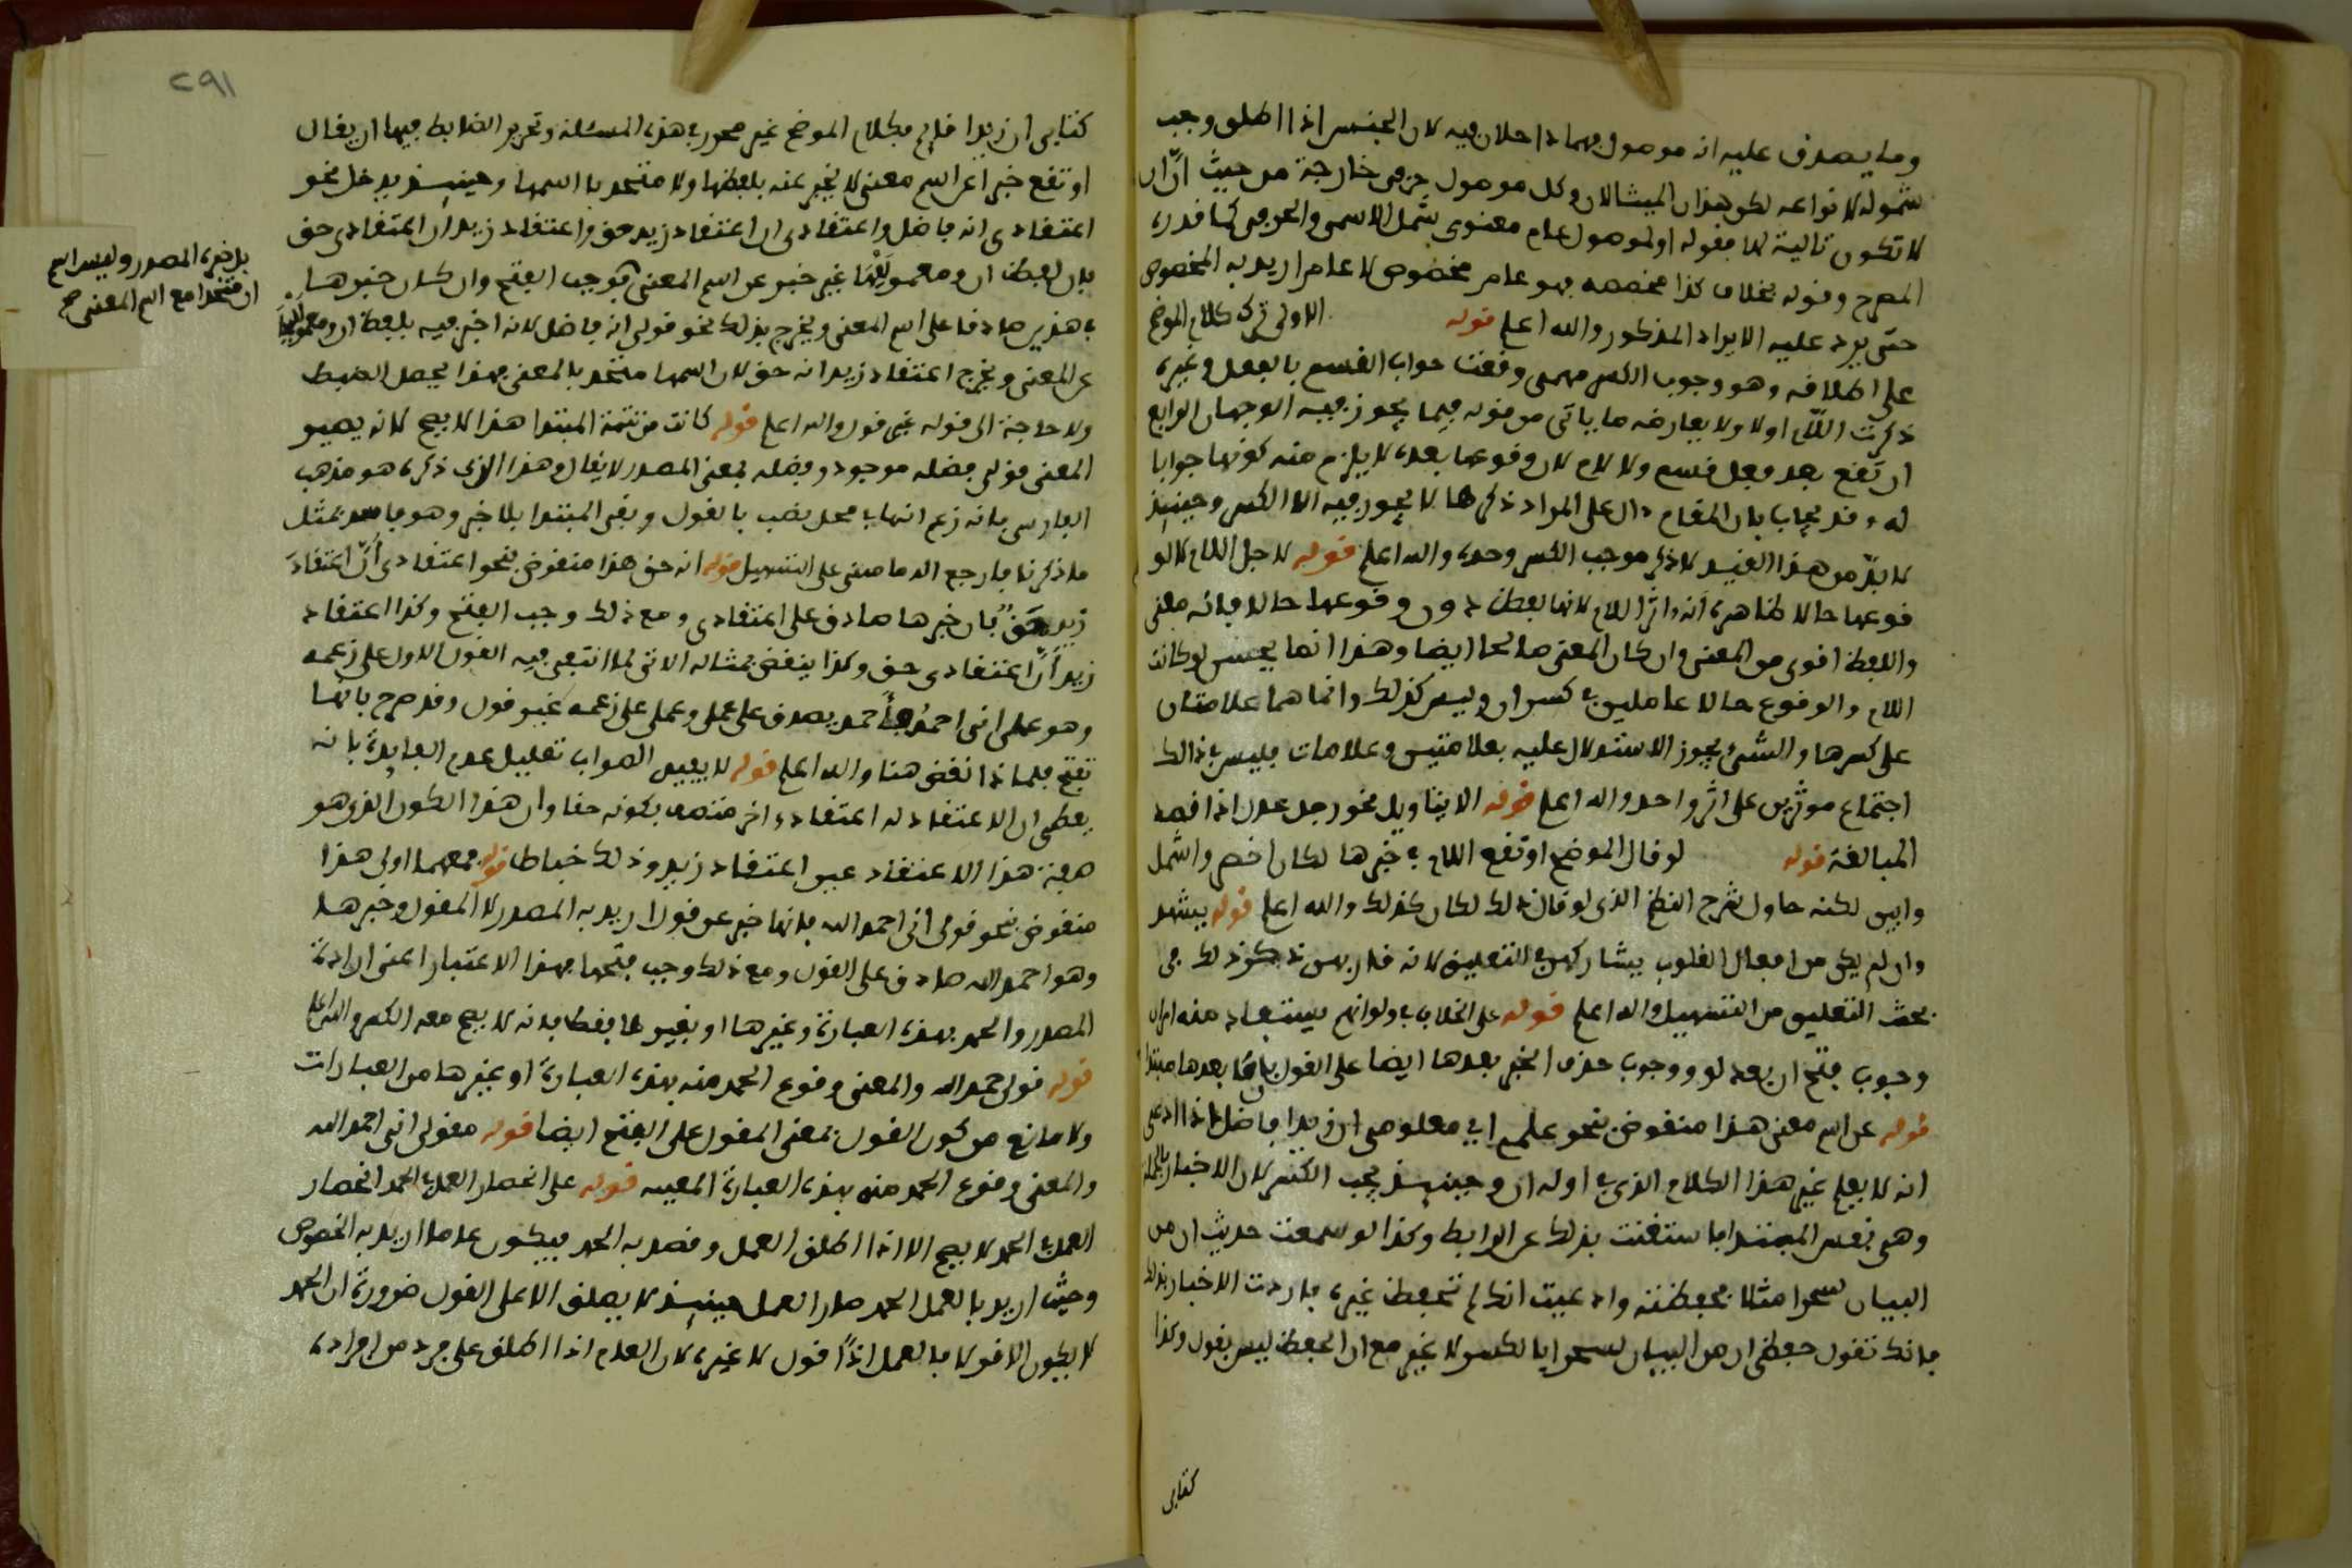 وما يصدق عليه انه موصول فهما داخلان فيه لان الجنس اذا اطلق وجب
شموله لانواعه لكن هذان المثالان وكل موصول حرفي خارجة من حيث ان ان
لا تكون تالية لها فقوله او لموصول عام معنوي شمل الاسمي والحرفي كما قدره
المصرح وقوله بخلاف كذا مخصصه فهو عام مخصوص لا عام اريد به الخصوص
حتى يرد عليه الايراد المذكور والله اعلم قوله الاولى ترك كلام الموضح
على اطلاقه وهو وجوب الكسر مهمى وقعت جواب القسم بالفعل وغيره
ذكرت اللام اولا ولا يعارضه ما ياتى من قوله فيما يجوز فيه الوجهان الرابع
ان تقع بعد فعل قسم ولا لام لان وقوعها بعده لا يلزم منه كونها جوابا
له وقد يجاب بان المقام دال على المراد ذكرها لا يجوز فيه الا الكسر وحينئذ
لا بد من هذا القيد لا ذكر موجب الكسر وحده والله اعلم قوله لاجل اللام لا لو
قوعها حالا ظاهره انه اثر اللام لانها لفظ دون وقوعها حالا فانه معنى
واللفظ اقوى من المعنى وان كان المعنى صالحا ايضا وهذا انما يحسن لو كانت
اللام والوقوع حالا عاملين في كسر ان وليس كذلك وانما هما علامتان
على كسرها والشئ يجوز الاستدلال عليه بعلامتين وعلامات فليس في ذلك
اجتماع موثرين على اثر واحد والله اعلم قوله الا بتاويل نحو رجل عدل اذا قصد
المبالغة قوله لو قال الموضح او تقع اللام في خبرها لكان اخصر واشمل
وابين لكنه حاول شرح النظم الذى لو قال ذلك لكان كذلك والله اعلم قوله يشهد
وان لم يكن من افعال القلوب يشاركهن في التعليق لانه قاربهن ذكر ذلك في
بحث التعليق من التسهيل والله اعلم قوله على الخلاف في ولو انهم يستفاد منه امران
وجوب فتح ان بعد لو ووجوب حذف الخبر بعدها ايضا على القول بان ما بعدها مبتدا
قوله عن اسم معنى هذا منقوض بنحو علمى اي معلومى ان زيدا فاضل اذا ادعى
انه لا يعلم غير هذا الكلام الذى في اوله ان وحينئذ يجب الكسر لان الاخبار بالجملة
وهى نفس المبتدا فاستغنت بذلك عن الرابط وكذا لو سمعت حديث ان من
البيان لسحرا مثلا فحفظته وادعيت انك لم تحفظ غيره فاردت الاخبار بذلك
فانك تقول حفظى ان من البيان لسحرا بالكسر لا غير مع ان الحفظ ليس بقول وكذا
كتابى
٢٩١
كتابى ان زيدا قايم فكلام الموضح غير محرر في هذه المسئلة وتحرير الضابط فيها ان يقال
او تقع خبرا عن اسم معنى لا يخبر عنه بلفظها ولا متحد باسمها وحينئذ يدخل نحو
اعتقادى انه فاضل واعتقادى ان اعتقاد زيد حق واعتقاد زيد ان اعتقادى حق
فان لفظ ان ومعموليها غير خبر عن اسم المعنى فوجب الفتح وان كان خبرها
بل جزء المصدر وليس اسم
ان متحدا مع اسم المعنى صح
في هذين صادقا على اسم المعنى ويخرج بذلك نحو قولى انه فاضل لانه اخبر فيه بلفظ ان ومعموليها
عن المعنى ويخرج اعتقاد زيد انه حق لان اسمها متحد بالمعنى فهذا يحصل الضبط
ولا حاجة الى قوله غير قول والله اعلم قوله كانت من تتمة المبتدا هذا لا يصح لانه يصير
المعنى قولى فضله موجود وفضله بمعنى المصدر لا يقال وهذا الذى ذكره هو مذهب
الفارسى فانه زعم انها في محل نصب بالقول وبقى المبتدا بلا خبر وهو فاسد بمثل
ما ذكرنا فارجع الد ماميني على التسهيل قوله انه حق هذا منقوض بنحو اعتقادى أنَّ اعتقادَ
زيد حق فان خبرها صادق على اعتقادى ومع ذلك وجب الفتح وكذا اعتقاد
زيد أنَّ اعتقادى حق وكذا ينقض بمثاله الاتى لما انتفى فيه القول الاول على زعمه
وهو عملى انى احمد فأحمد يصدق على عمل وعملى على زعمه غير قول وقد صرح بانها
تفتح فلماذا نقض هنا والله اعلم قوله لا يفيد الصواب تعليل عدم الفايدة بانه
يعطى ان الاعتقاد له اعتقاد واخر متصف بكونه حقا وان هذا الكون الذى هو
صفة هذا الاعتقاد عين اعتقاد زيد وذلك خباط قوله فمعهما اولى هذا
منقوض بنحو قولى انى احمد الله فانها خبر عن قول اريد به المصدر لا المقول وخبرها
وهو احمد الله صادق على القول ومع ذلك وجب فتحها بهذا الاعتبار اعنى ارادة
المصدر والحمد بهذه العبارة وغيرها او بغيرها فقط فانه لا يصح معه الكسر والله اعلم
قوله قولى حمد الله والمعنى وقوع الحمد منه بهذه العبارة او بغيرها من العبارات
ولا مانع من كون القول بمعنى المقول على الفتح ايضا قوله مقولى انى احمد الله
والمعنى وقوع الحمد منه بهذه العبارة المعينه قوله على انحصار العمل في الحمد انحصار
العمل في الحمد لا يصح الا اذا اطلق العمل وقصد به الحمد فيكون عاما اريد به الخصوص
وحيث اريد بالعمل الحمد صار العمل حينئذ لا يصدق الا على القول ضرورة ان الحمد
لا يكون الا قولا فالعمل اذاً قول لا غيره لان العام اذا اطلق على فرد من افراده